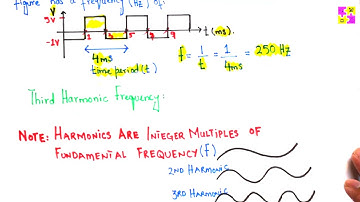 figure has a frequency (Hz) of:
5V
-2V
1 3 5 7 9
t (ms).
4ms
time period (t)
f = 1/t = 1/4ms = 250 Hz
Third Harmonic Frequency:
NOTE: HARMONICS ARE INTEGER MULTIPLES OF
FUNDAMENTAL FREQUENCY (f)
2ND HARMONIC
3RD HARMONIC